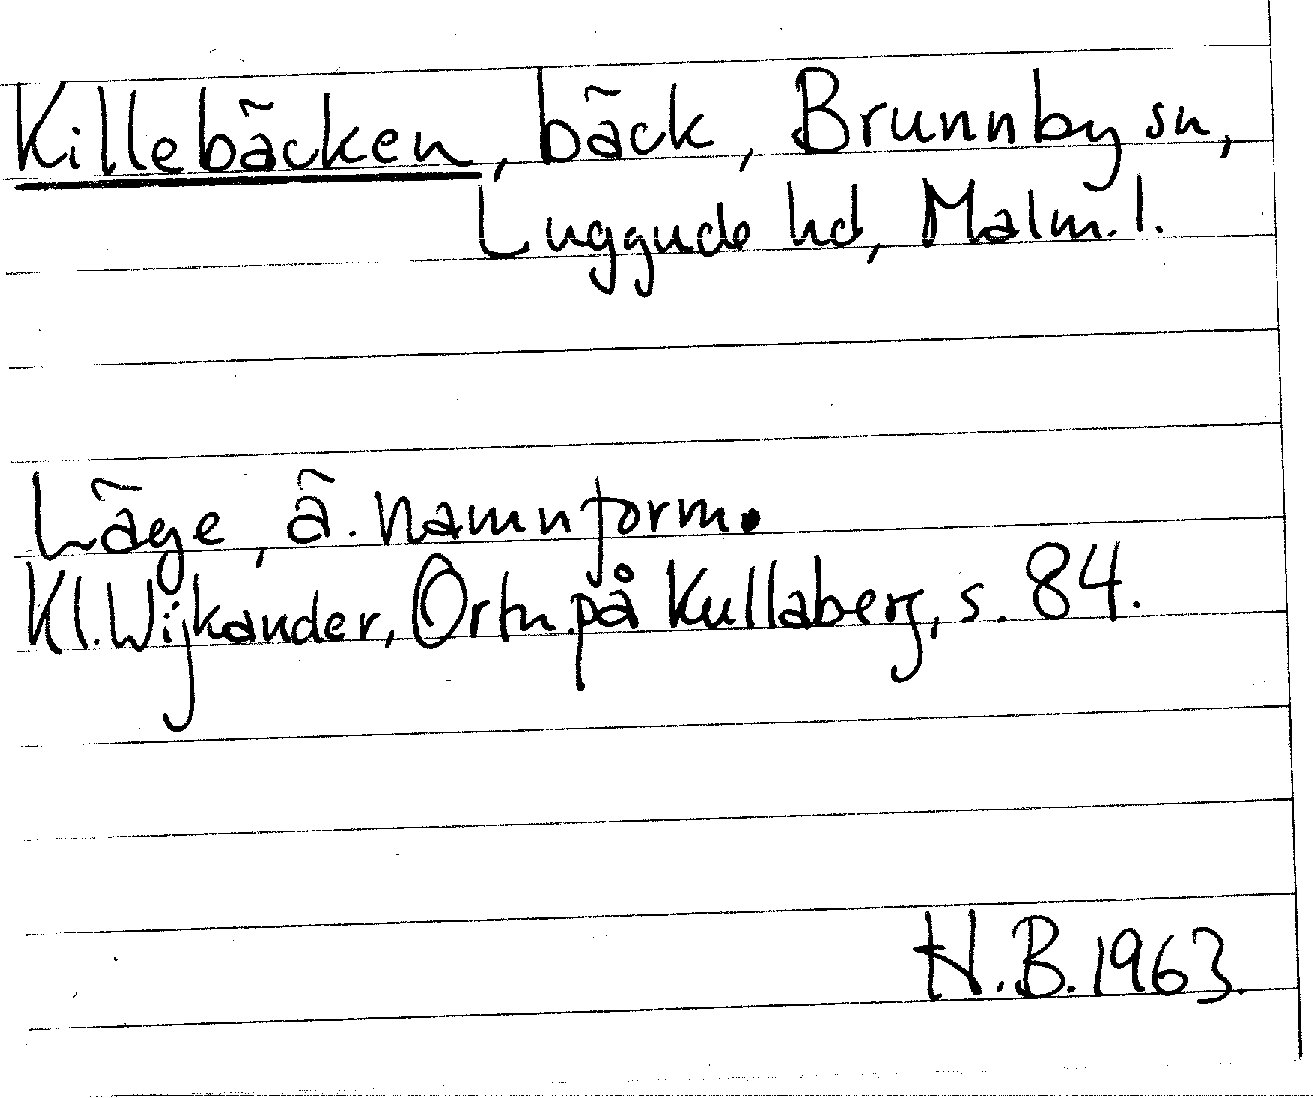 Killebäcken, bäck, Brunnby sn,
Luggude hd, Malm. l.
Läge, ä. namnform.
Kl. Wijkander, Ortn. på Kullaberg, s. 84.
H.B. 1963.